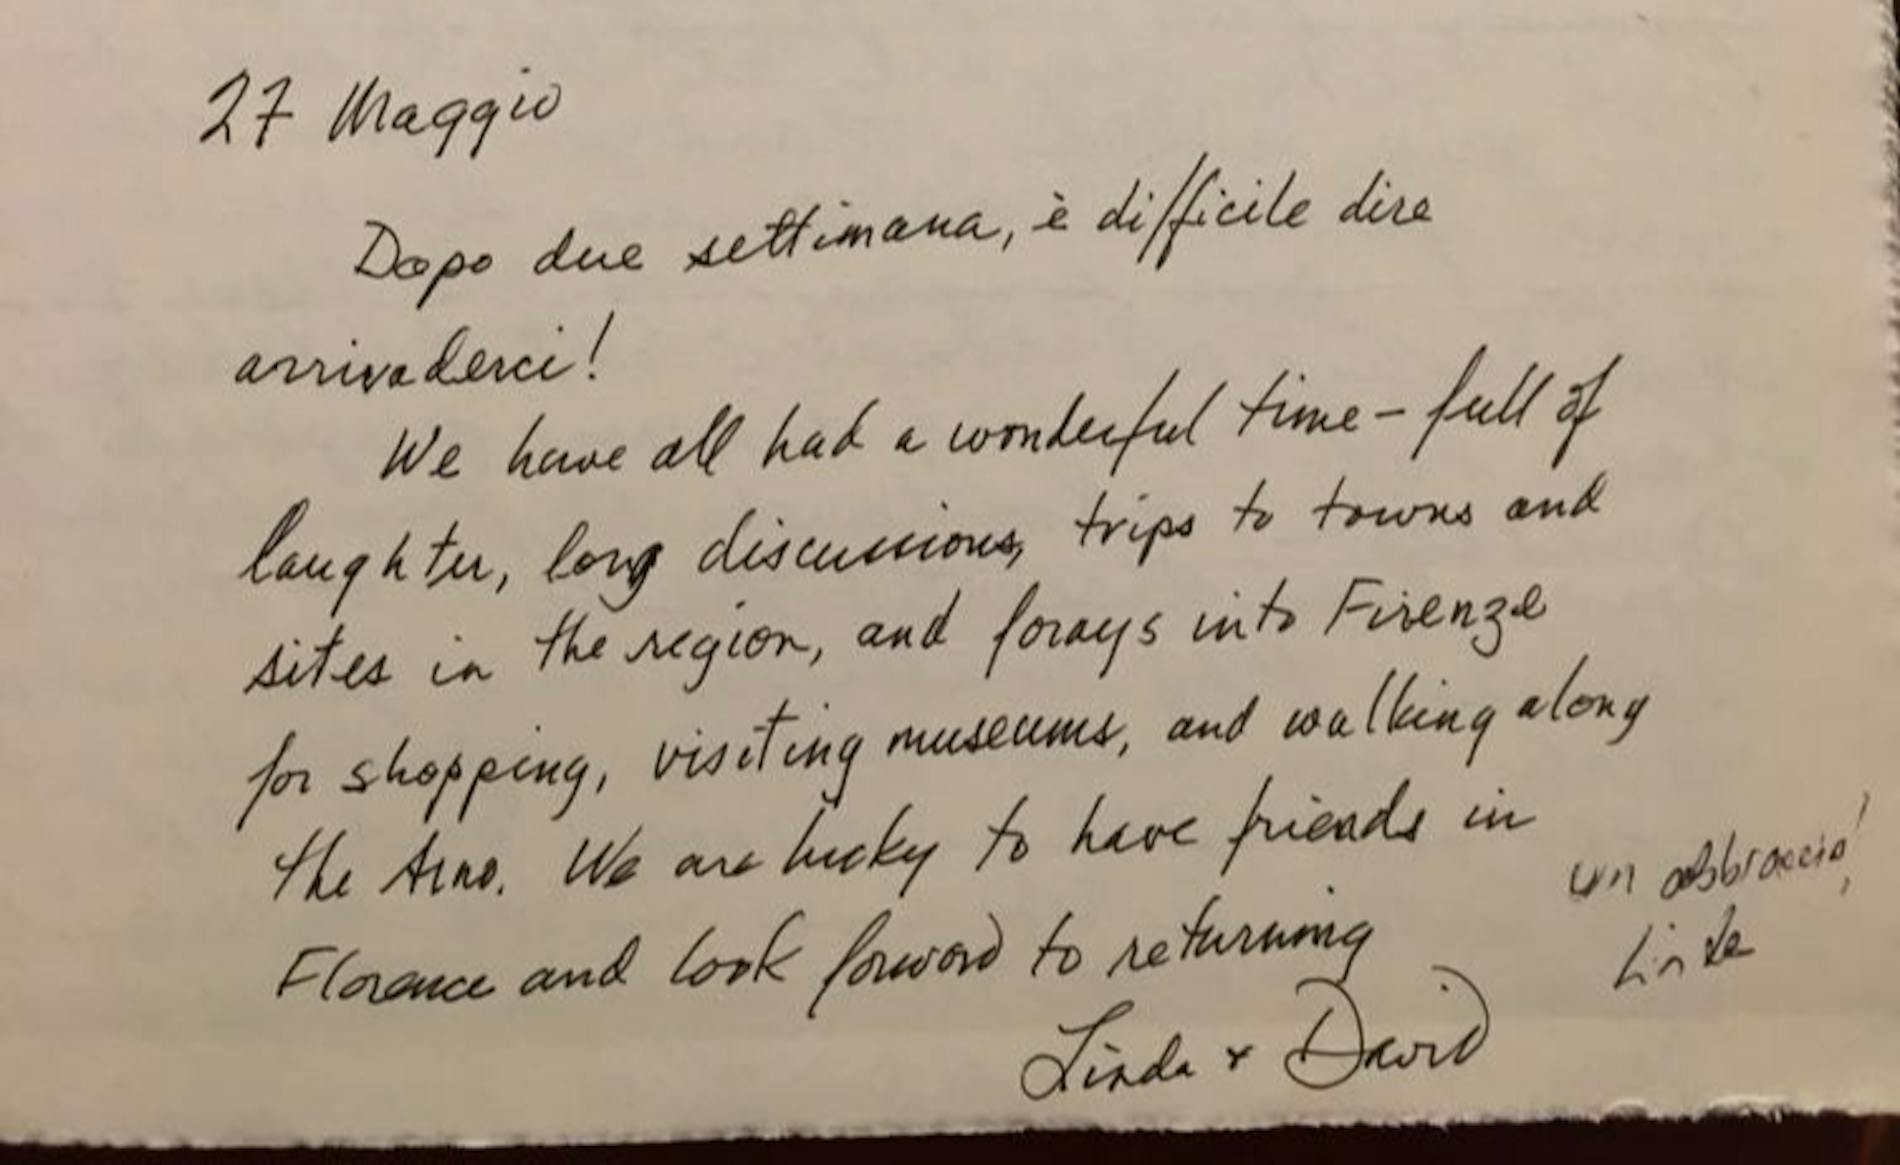 27 Maggio
Dopo due settimana, è difficile dire
arrivaderci!
We have all had a wonderful time – full of
laughter, long discussions, trips to towns and
sites in the region, and forays into Firenze
for shopping, visiting museums, and walking along
the Arno. We are lucky to have friends in
Florence and look forward to returning
Linda + David
un abbraccio!
Linda